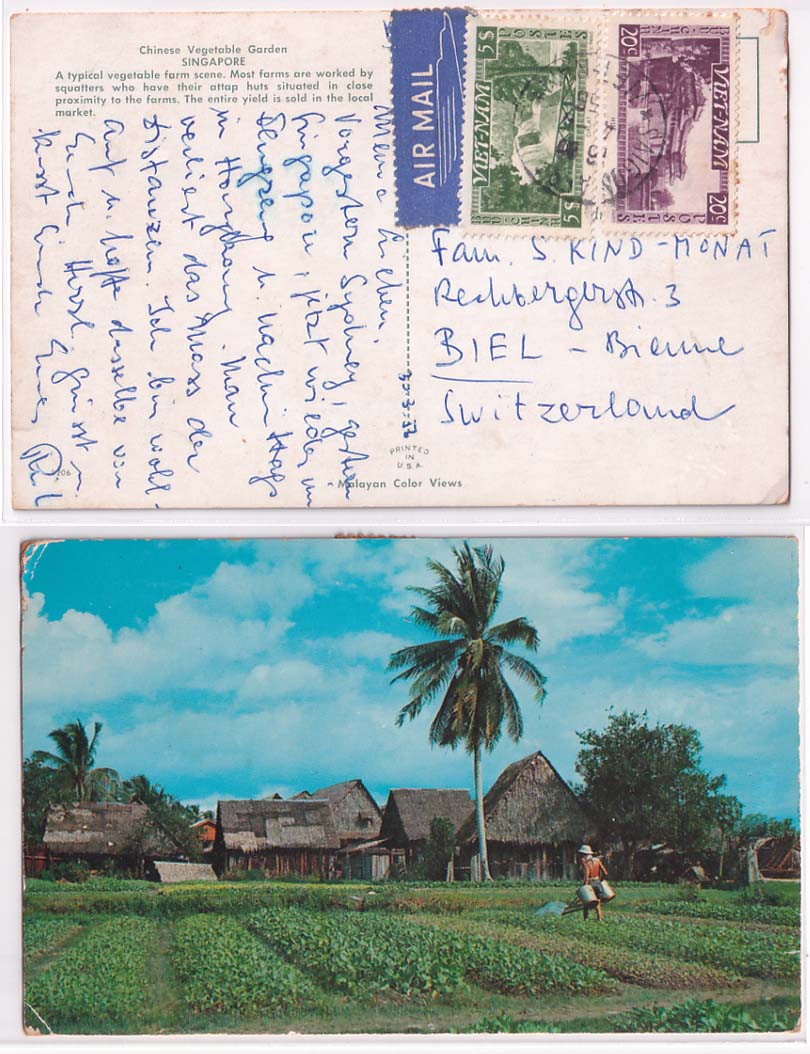 Chinese Vegetable Garden
SINGAPORE
A typical vegetable farm scene. Most farms are worked by
squatters who have their attap huts situated in close
proximity to the farms. The entire yield is sold in the local
market.
AIR MAIL
5$ 5$
VIET-NAM
5$
20c 20c
VIET-NAM
POSTES
20c
Meine Lieben,
Vorgestern Sydney, gestern
Singapore, jetzt wieder im
Flugzeug u. nachmittags
in Hongkong. Man
verliert das Mass der
Distanzen. Ich bin wohl-
auf u. hoffe dasselbe von
Euch. Herzl. grüsst u.
küsst Euch Euer
30.3.57
Fam. S. KIND-MONAT
Rechbergerstr. 3
BIEL - Bienne
Switzerland
PRINTED
IN
U.S.A.
206
Malayan Color Views